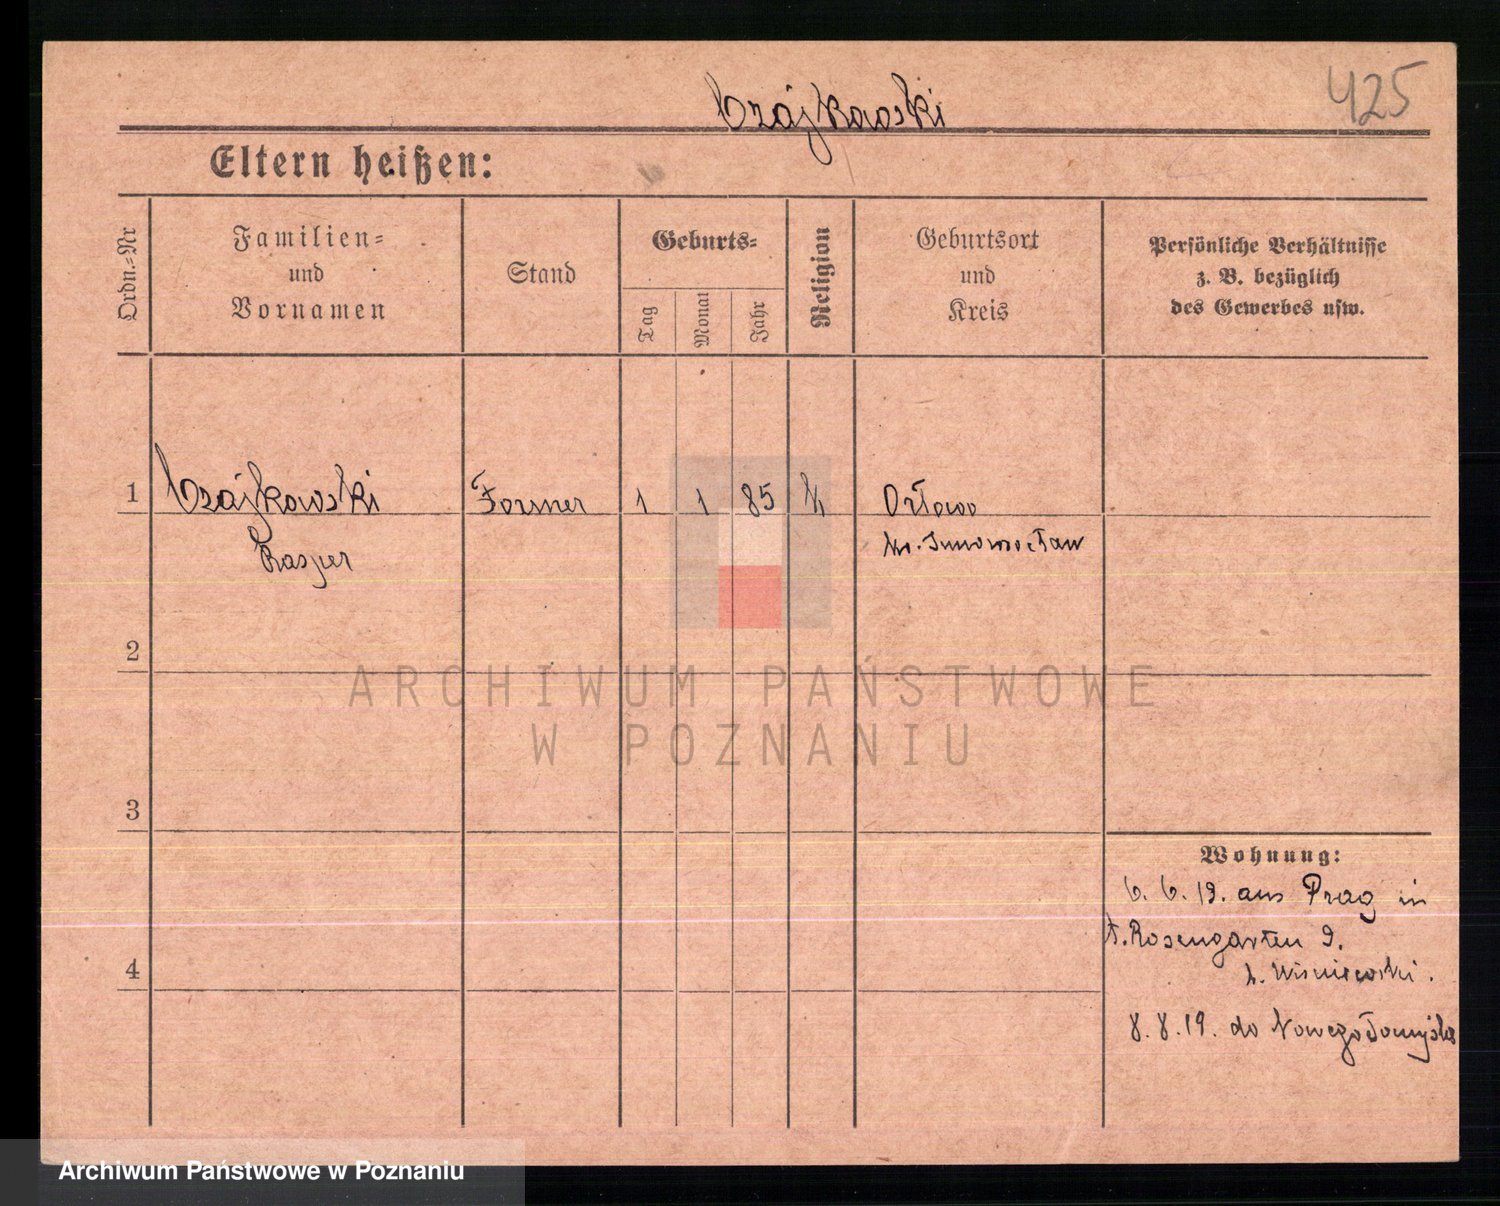 Czajkowski
425
Eltern heißen:
Ordn.-Nr
Familien-
und
Vornamen
Stand
Geburts-
Tag
Monat
Jahr
Religion
Geburtsort
und
Kreis
Persönliche Verhältnisse
z. B. bezüglich
des Gewerbes usw.
1 Czajkowski Former 1 1 85 Orłowo
Kasper Kr. Inowrocław
2
ARCHIWUM PAŃSTWOWE
W POZNANIU
3
Wohnung:
6. 6. 19. aus Prag in
Rosengarten 9.
b. Wisniewski.
4
8. 8. 19. do Nowego Tomyśla
Archiwum Państwowe w Poznaniu